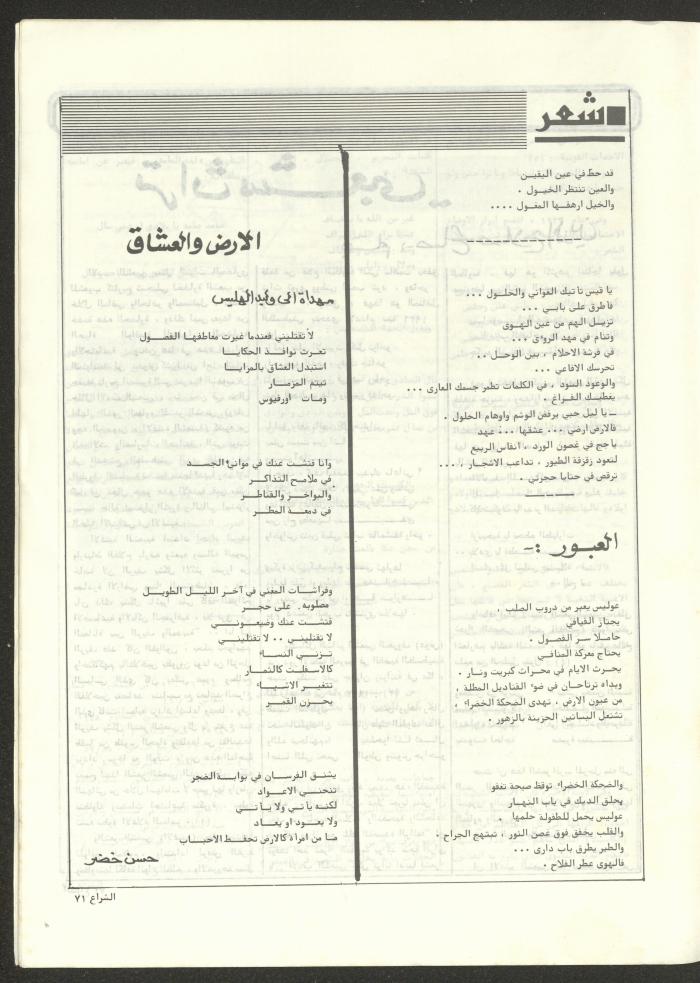 شعر
قد حط في عين اليقين
والعين تنتظر الخيول .
والخيل ارهقها المغول ....
يا قيس تاتيك الغواني والحلول ...
فاطرق على بابي ...
تزيل الهم من عين الهوى
وتنام في مهد الرؤى ...
في فرشة الاحلام ، بين الوحل ..
تحرسك الافاعي ...
والوعود السود ، في الكلمات تظهر جسمك العارى ...
يغطيك الفراغ .
ــ يا ليل حبي يرفض الوشم واوهام الحلول .
فالارض ارضي ... عشقها ... عهد
يأجج في غصون الورد ، انفاس الربيع
لتعود زقزقة الطيور ، تداعب الاشجار ، ...
ترقص في حنايا حجرتي .
العبور :-
عوليس يعبر من دروب الصلب ،
يجتاز الفيافي
حاملا سر الفصول .
يجتاح معركة المنافي
يحرث الايام في محراث كبريت ونار .
ويداه ترتاحان في ضوء القناديل المطلة ،
من عيون الارض ، تهدى الضحكة الخضراء ،
تشتعل البساتين الحزينة بالزهور .
والضحكة الخضراء توقظ صيحة تغفو
يحلق الديك في باب النهار
عوليس يحمل للطفولة حلمها .
والقلب يخفق فوق غصن النور ، تبتهج الجراح .
والطير يطرق باب دارى ...
فالهوى عطر الفلاح .
الارض والعشاق
مهداة الى وليد الهليس
لا تقتليني فعندما غيرت معاطفها الفصول
تعرت نوافذ الحكايا
استبدل العشاق بالمرايا
تيتم المزمار
ومات اورفيوس
وانا فتشت عنك في موانيء الجسد
في ملامح التذاكر
والبواخر والقناطر
في دمعة المطر
وفراشات المغني في آخر الليل الطويل
مصلوبة على حجر
فتشت عنك وضيعوني
لا تقتليني .. لا تقتليني
تزني النساء
كالاسفلت كالثمار
تتغير الاشياء
يحزن القمر
يشنق الفرسان في بوابة الفجر
تنحني الاعواد
لكنه يأتي ولا يأتي
ولا يعود او يعاد
ما من امرأة كالارض تحفظ الاحباب
حسن خضر
الشراع ٧١